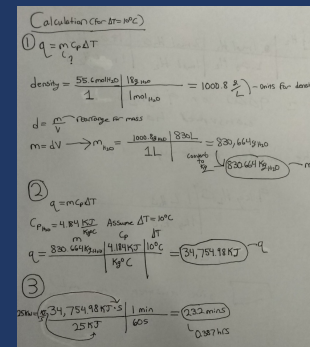 Calculation (For ΔT=10°C)
① q = m Cp ΔT
?
density = 55.6 mol H₂O | 18g H₂O = 1000.8 g/L - units for densi
1 | 1 mol H₂O
d = m/V rearrange for mass
m = dV → m H₂O = 1000.8g H₂O | 830L = 830,664g H₂O
1L
convert to kg
830.664 Kg H₂O - m
②
q = mCpΔT
Cp H₂O = 4.184 KJ/Kg°C Assume ΔT = 10°C
m Cp ΔT
q = 830.664Kg H₂O | 4.184KJ | 10°C = 34,754.98 KJ - q
Kg°C
③
34,754.98KJ·s | 1 min = 23.2 mins
25KJ | 60s
0.387 hrs